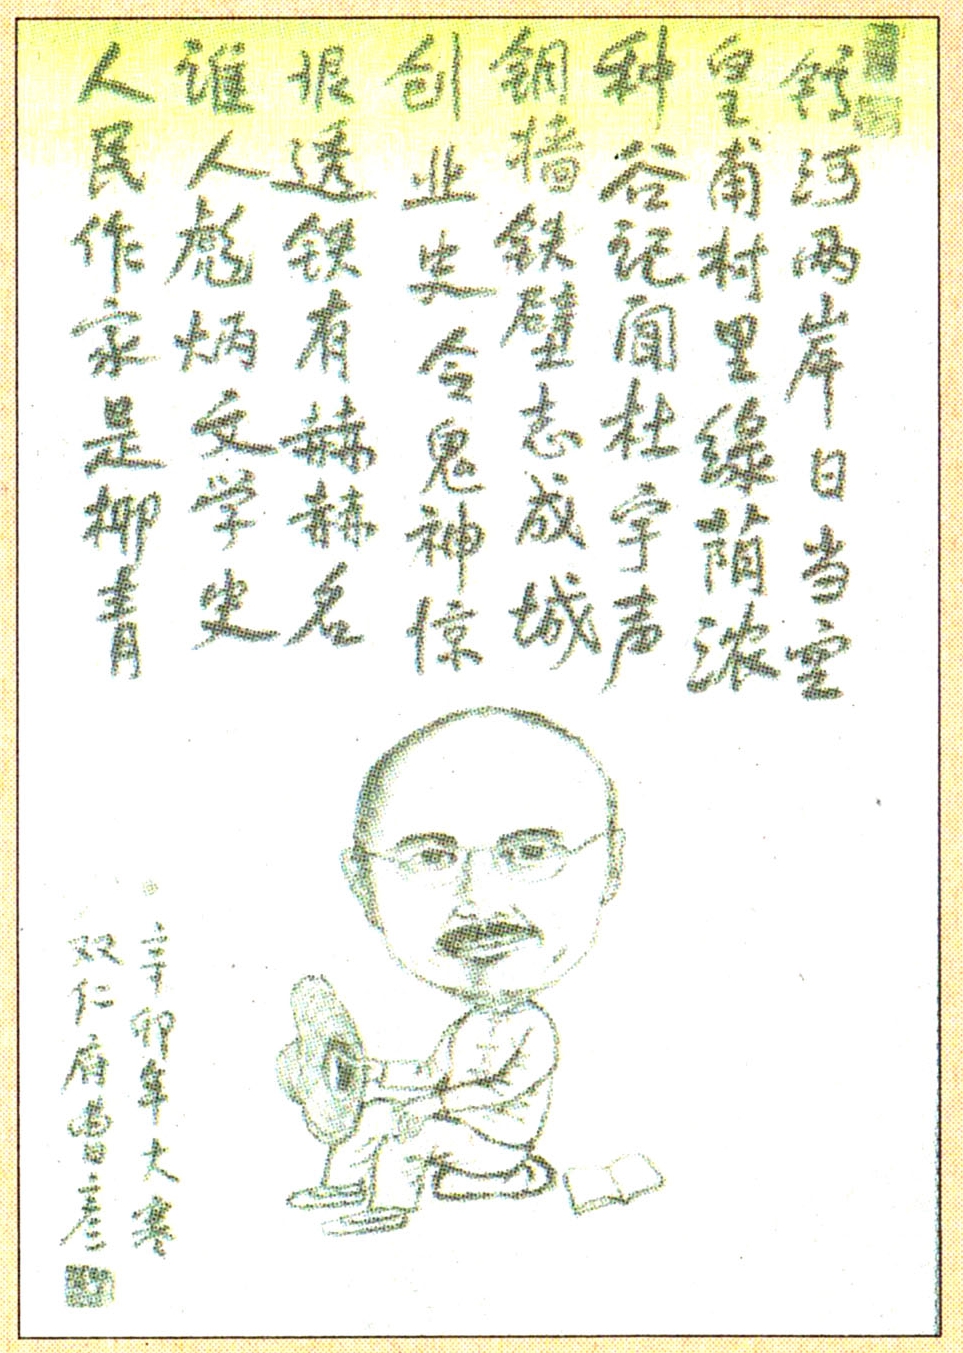 镐河两岸日当空
皇甫村里绿荫浓
种谷记闻杜宇声
铜墙铁壁志成城
创业史令鬼神惊
恨透铁有赫赫名
谁人彪炳文学史
人民作家是柳青
辛卯年大寒
双仁府曹彦